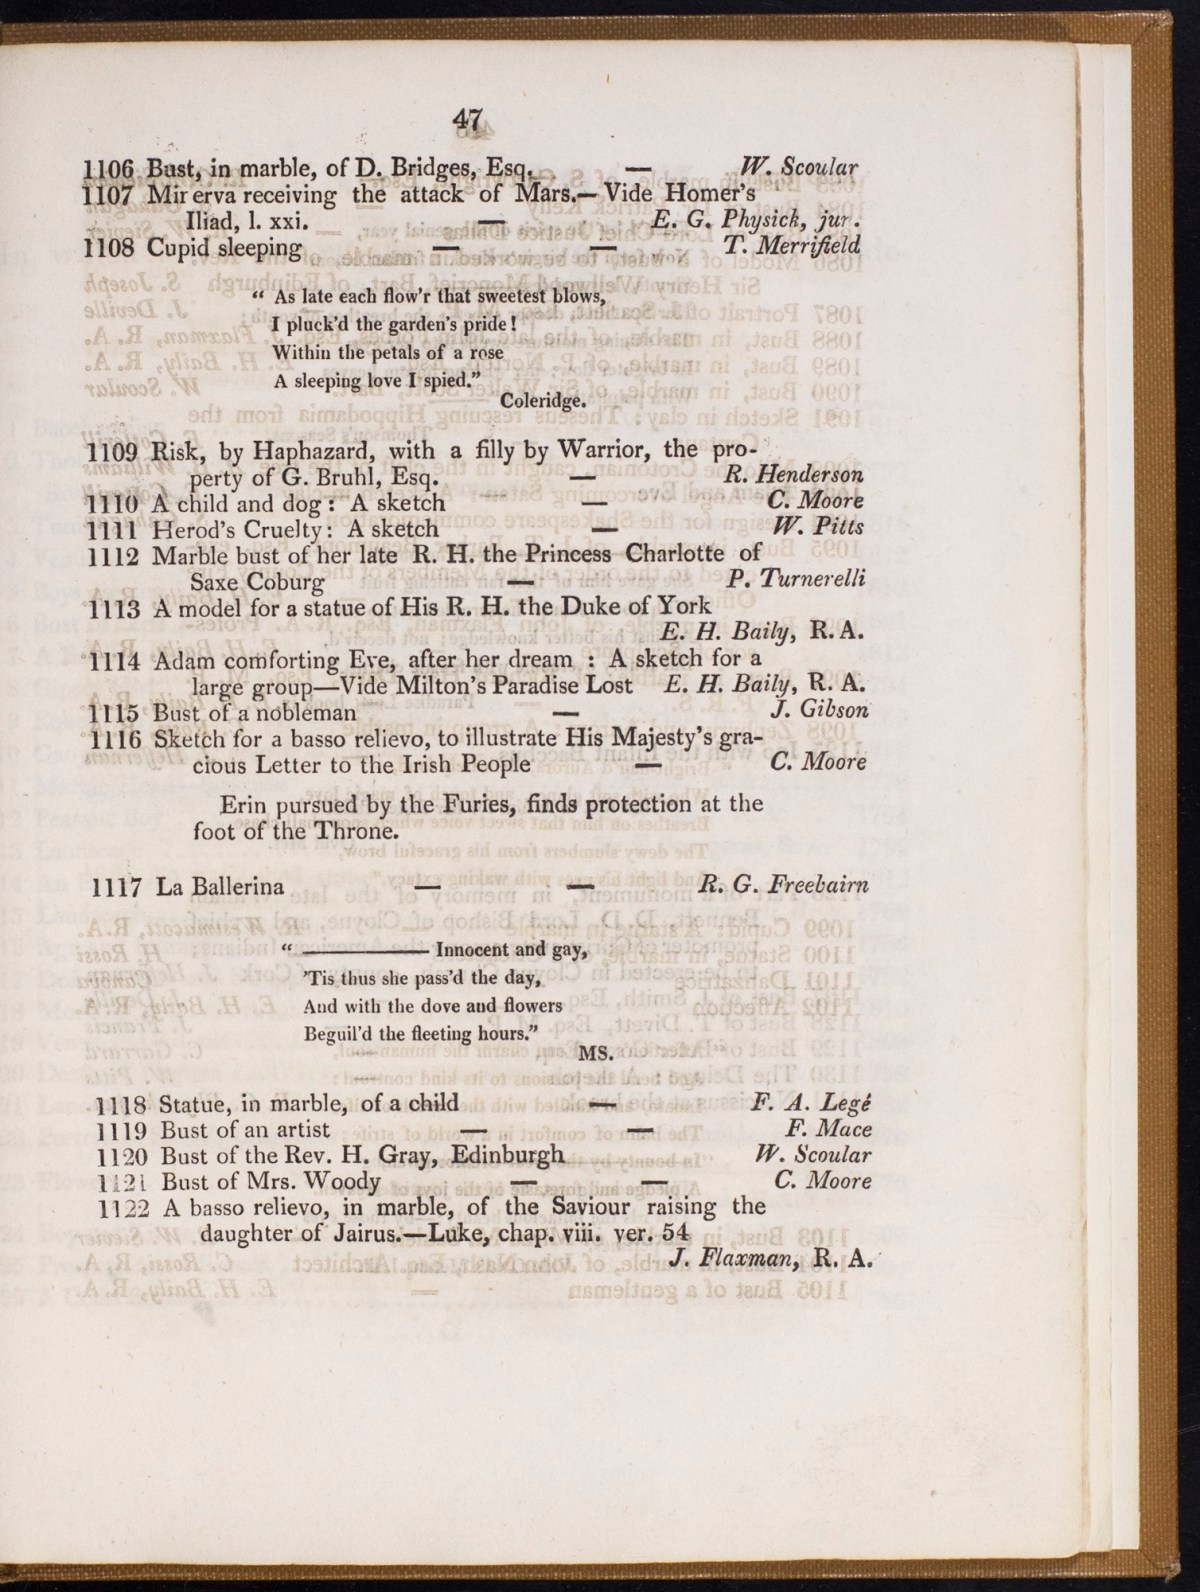 47
1106 Bust, in marble, of D. Bridges, Esq. — W. Scoular
1107 Minerva receiving the attack of Mars.—Vide Homer's
Iliad, l. xxi. — E. G. Physick, jur.
1108 Cupid sleeping — — T. Merrifield
“ As late each flow'r that sweetest blows,
I pluck'd the garden's pride!
Within the petals of a rose
A sleeping love I spied.”
Coleridge.
1109 Risk, by Haphazard, with a filly by Warrior, the pro-
perty of G. Bruhl, Esq. — R. Henderson
1110 A child and dog: A sketch — C. Moore
1111 Herod's Cruelty: A sketch — W. Pitts
1112 Marble bust of her late R. H. the Princess Charlotte of
Saxe Coburg — P. Turnerelli
1113 A model for a statue of His R. H. the Duke of York
E. H. Baily, R. A.
1114 Adam comforting Eve, after her dream : A sketch for a
large group—Vide Milton's Paradise Lost E. H. Baily, R. A.
1115 Bust of a nobleman — J. Gibson
1116 Sketch for a basso relievo, to illustrate His Majesty's gra-
cious Letter to the Irish People — C. Moore
Erin pursued by the Furies, finds protection at the
foot of the Throne.
1117 La Ballerina — — R. G. Freebairn
“ ———— Innocent and gay,
'Tis thus she pass'd the day,
And with the dove and flowers
Beguil'd the fleeting hours.”
MS.
1118 Statue, in marble, of a child — F. A. Legé
1119 Bust of an artist — — F. Mace
1120 Bust of the Rev. H. Gray, Edinburgh W. Scoular
1121 Bust of Mrs. Woody — — C. Moore
1122 A basso relievo, in marble, of the Saviour raising the
daughter of Jairus.—Luke, chap. viii. ver. 54
J. Flaxman, R. A.